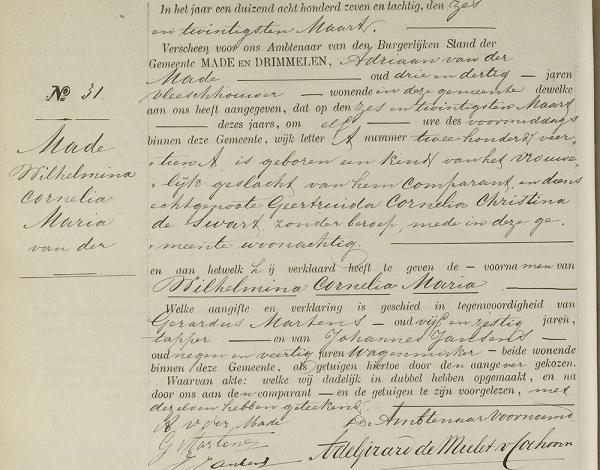 In het jaar een duizend acht honderd zeven en tachtig, den zes
en twintigsten Maart.
Verscheen voor ons Ambtenaar van den Burgerlijken Stand der
Gemeente MADE EN DRIMMELEN, Adriaan van der
Made oud drie en dertig jaren
vleeschhouwer — wonende in deze gemeente dewelke
aan ons heeft aangegeven, dat op den zes en twintigsten Maart
dezes jaars, om elf ure des voormiddags
binnen deze Gemeente, wijk letter A nummer twee honderd veer-
tien A, is geboren een kind van het vrouwe-
lijk geslacht van hem comparant, en diens
echtgenoote Geertruida Cornelia Christina
de Swart, zonder beroep, mede in deze ge-
meente woonachtig.
en aan hetwelk hij verklaard heeft te geven de voornamen van
Wilhelmina Cornelia Maria
Welke aangifte en verklaring is geschied in tegenwoordigheid van
Gerardus Martens — oud vijf en zestig jaren,
tapper — en van Johannes Jansens —
oud negen en veertig jaren Wagenmaker — beide wonende
binnen deze Gemeente, als getuigen hiertoe door den aangever gekozen.
Waarvan akte: welke wij dadelijk in dubbel hebben opgemaakt, en na
door ons aan den comparant — en de getuigen te zijn voorgelezen, met
dezelven hebben geteekend.
A v der Made
De Ambtenaar voornoemd
G Martens
J Jansens
No 31.
Made
Wilhelmina
Cornelia
Maria
van der